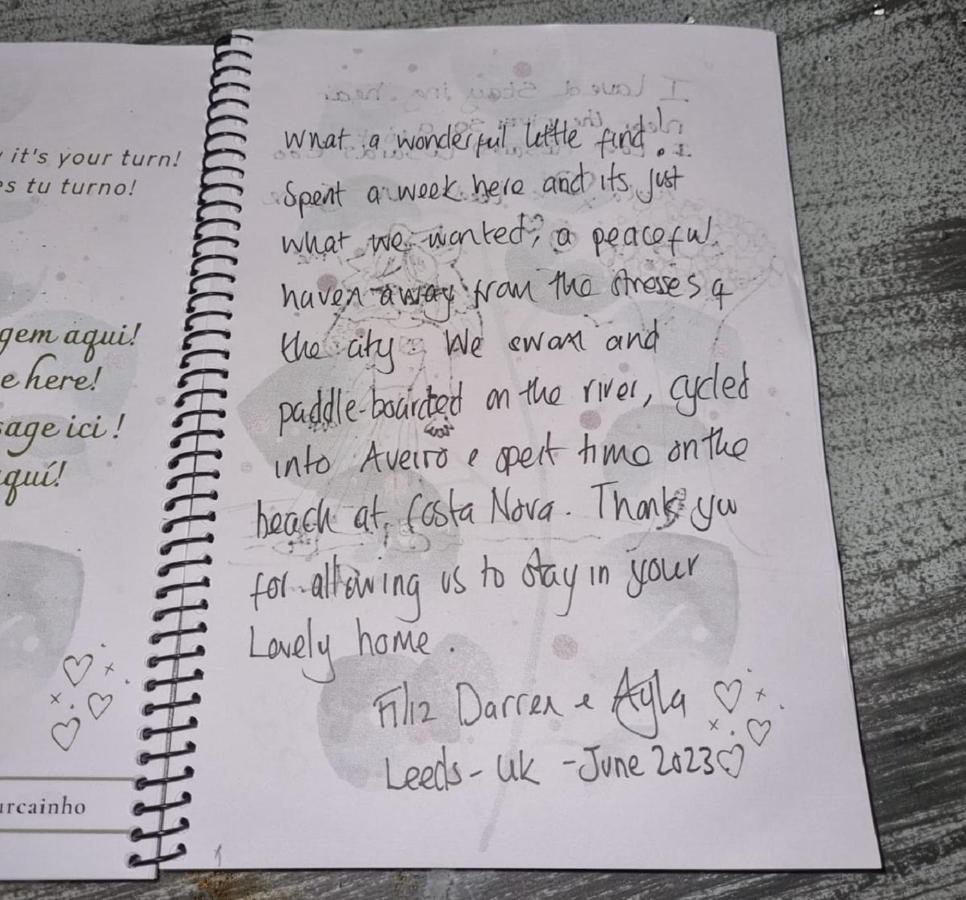 it's your turn!
s tu turno!
gem aqui!
e here!
sage ici !
quí!
rcainho
What a wonderful little find.
Spent a week here and its just
what we wanted, a peaceful
haven away from the stresses of
the city. We swam and
paddle-boarded on the river, cycled
into Aveiro e spent time on the
beach at Costa Nova. Thank you
for allowing us to stay in your
Lovely home.
Filiz Darren e Ayla
Leeds - UK - June 2023